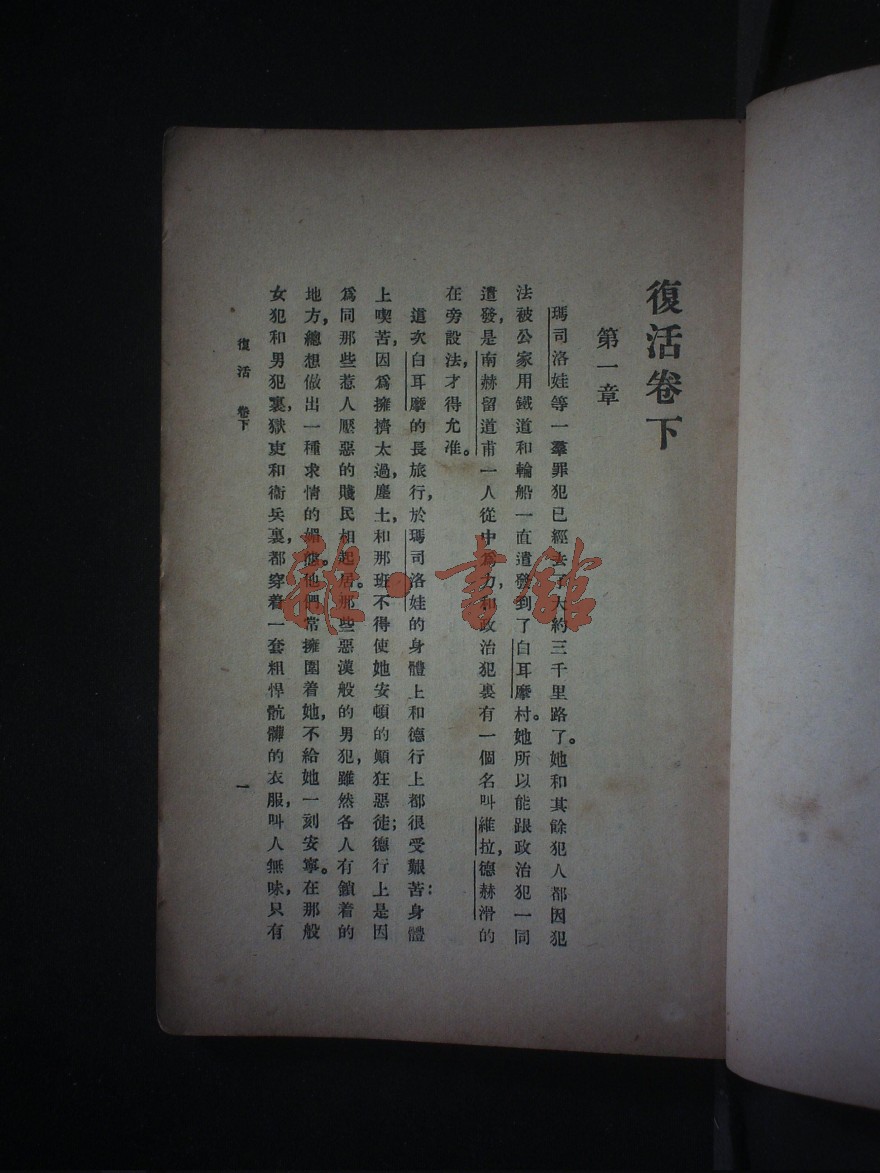 復活卷下
第一章
瑪司洛娃等一羣罪犯已經去了大約三千里路了。她和其餘犯人都因犯
法被公家用鐵道和輪船一直遣發到了白耳摩村。她所以能跟政治犯一同
遣發,是南赫留道甫一人從中爲力,和政治犯裏有一個名叫維拉,德赫滑的
在旁設法,才得允准。
這次白耳摩的長旅行,於瑪司洛娃的身體上和德行上都很受艱苦:身體
上喫苦,因爲擁擠太過,塵土,和那班不得使她安頓的顛狂惡徒;德行上是因
爲同那些惹人壓惡的賤民相起居。那些惡漢般的男犯,雖然各人有鎖着的
地方,總想做出一種求情的媚態。他們常擁圍着她,不給她一刻安寧。在那般
女犯和男犯裏,獄吏和衞兵裏,都穿着一套粗悍骯髒的衣服,叫人無味,只有
復活 卷下
一
雜·書館